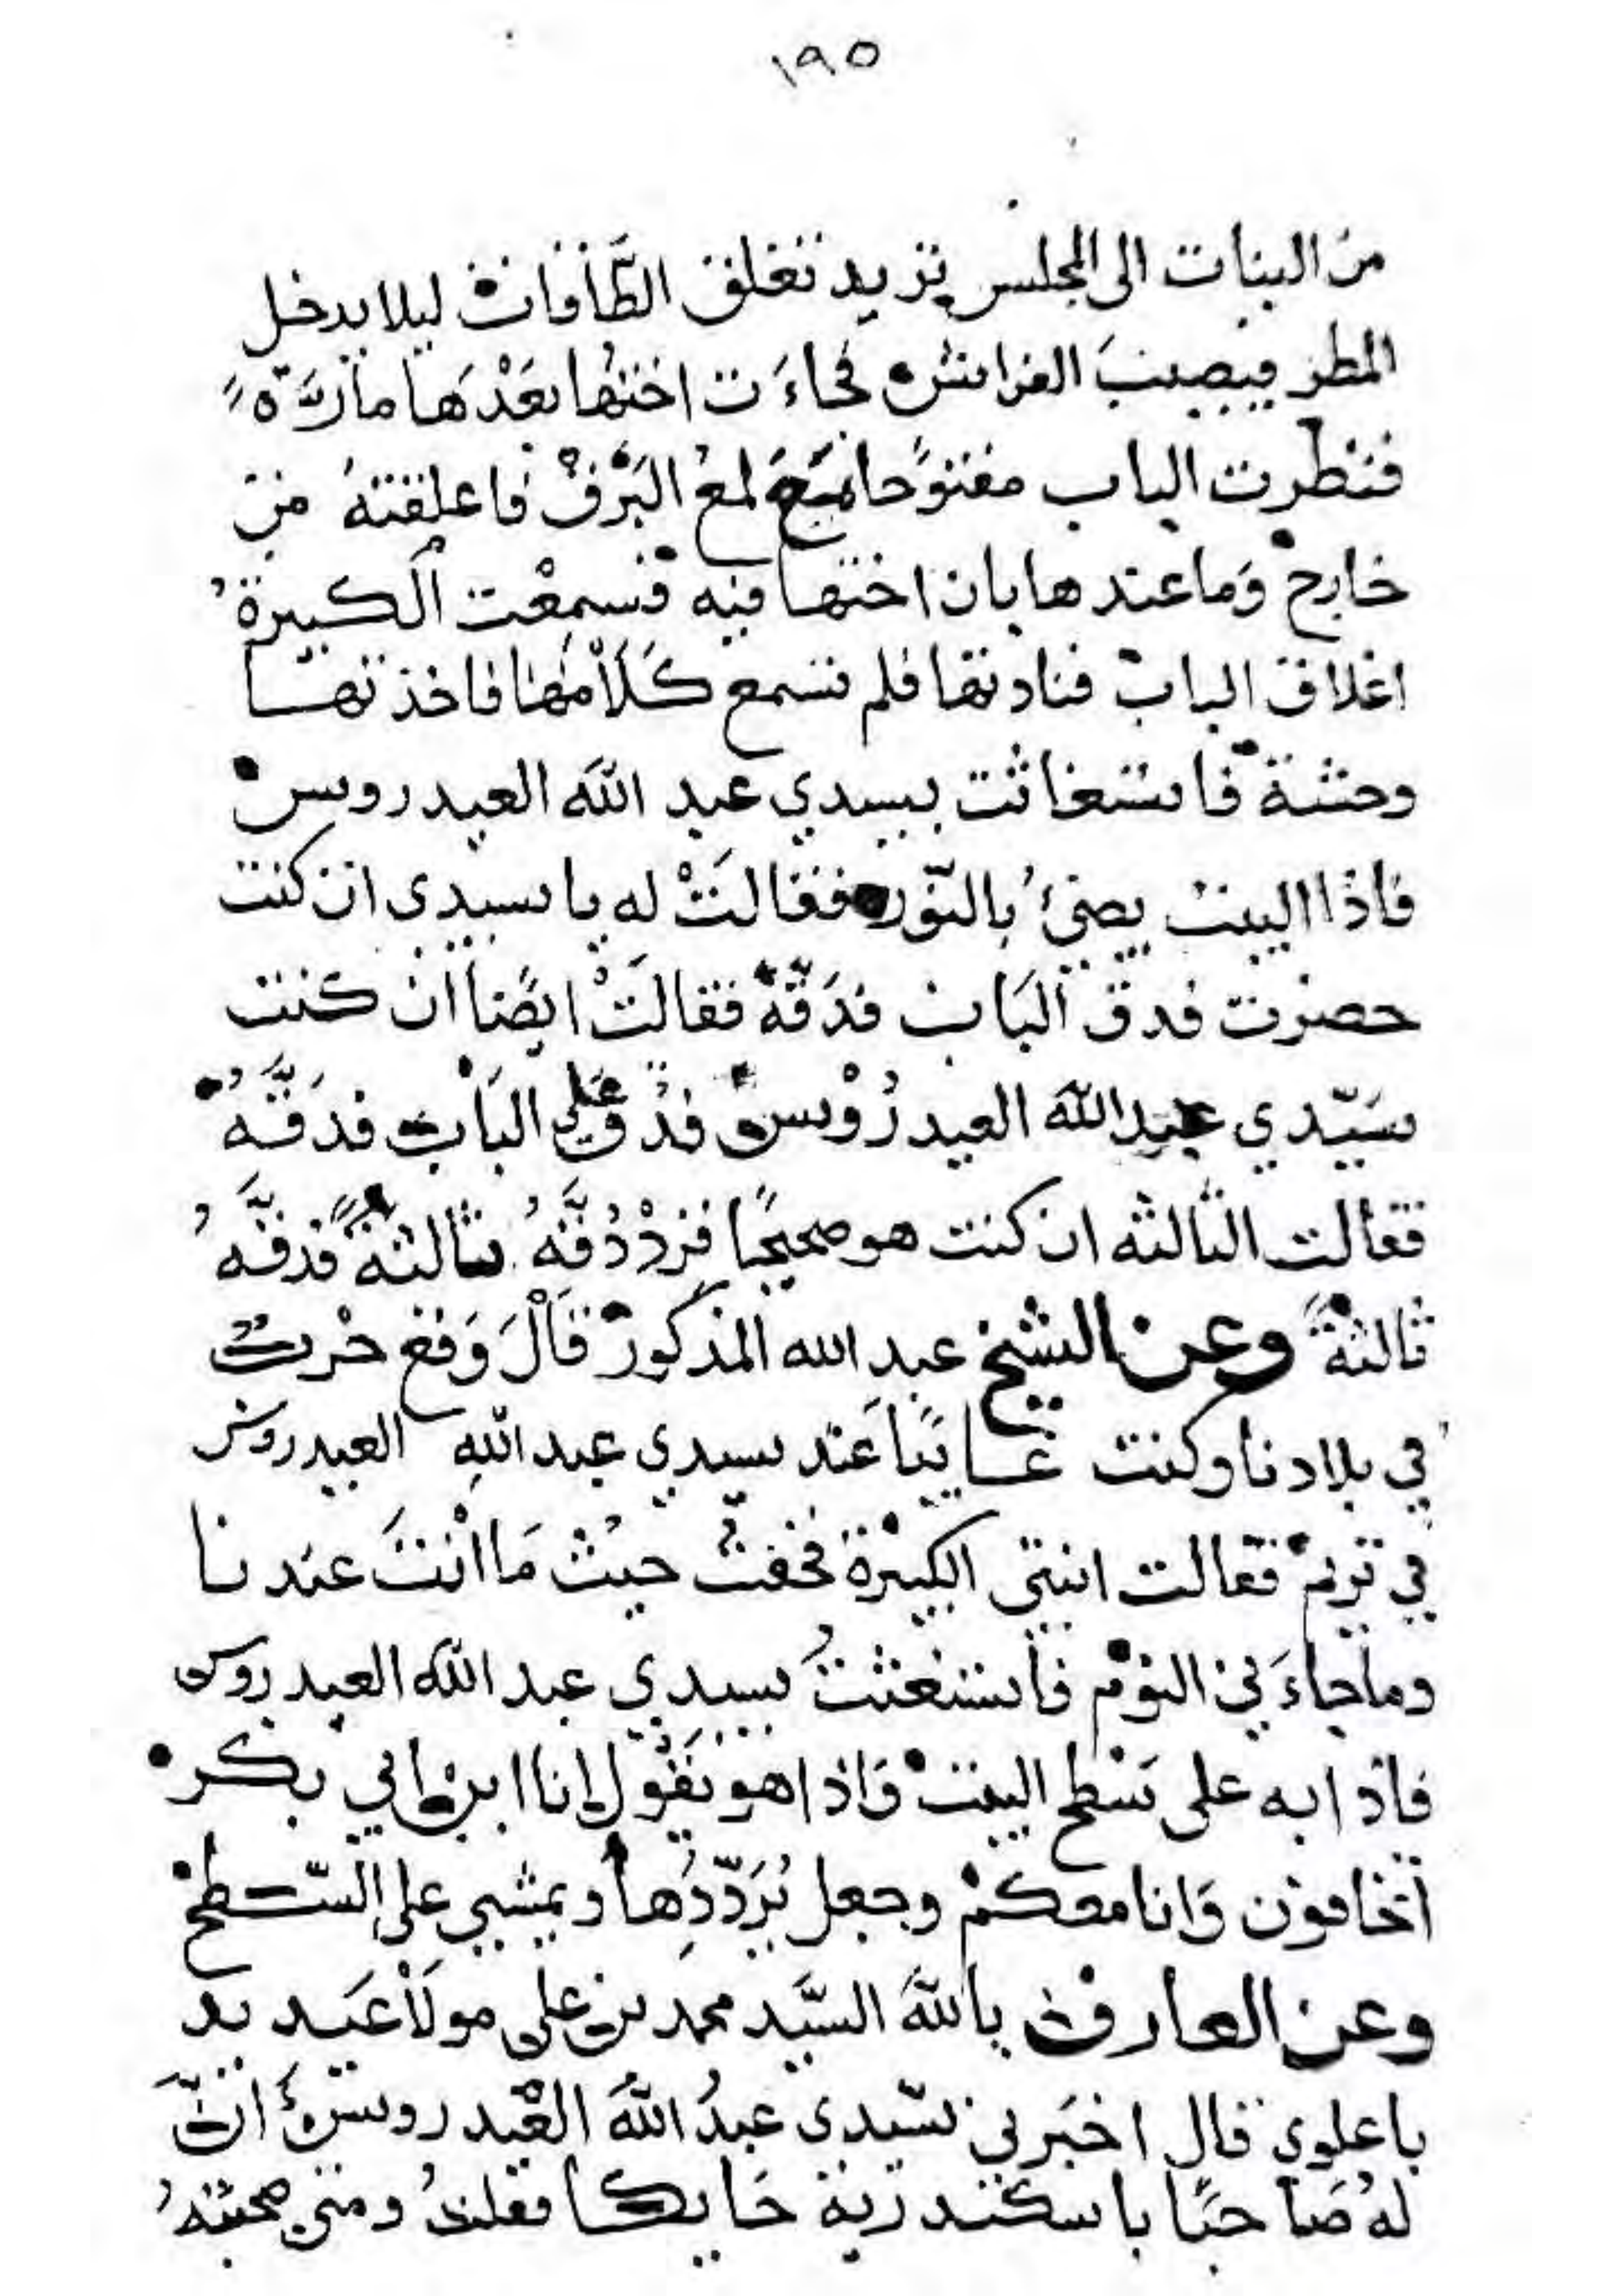 ١٩٥
من البنات الى المجلس تريد تغلق الطَّاقات ليلا يدخل
المطر فيصيبَ الفراش فجاءَت اختها بعَدْهَا مارَّة
فنظرت الباب مفتوًحا مَعَ لمع البَرْقْ فاغلقتهُ من
خارج وَما عندها بان اختها فيه فسمِعْت الكبيرة
اغلاق الباب فنادتها فلم تسمع كَلَاْمها فاخذتها
وحشة فاستغاثت بسيدي عبد اللَّه العيدروس
فاذا البيت يضئُ بالنّور فقالَتْ له يا سيدي ان كنت
حضرت فدق البَاب فدَقَّهُ فقالَتْ ايضًا ان كنت
سَيّدي عبد اللَّه العيدرُوْس فدُق عَلي البَاب فدَقَّهُ
فقالت الثالثه ان كنت هو صحيحًا فزدْ دُقَّهُ ثالثةً فدقَّهُ
ثالثةً وعن الشيخ عبد الله المذكور قَاْلَ وَقع حْربٌ
في بلادنا وكنت غايبًا عَند سيدي عبد اللَّهِ العيدروس
في تريم فقالت ابنتي الكبيرة فخفتُ حيث مَا انْتَ عندنا
وما جاءَني النوم فاستغثتُ بسيدي عبد اللَّه العيدروس
فاذا به على سْطح البيت وَاذا هو يَقُول انا ابن ابي بكر
أتخافون وَانا معكمْ وجعل يُرَدّدُها ويمشي على السَّطح
وعن العارف باللَّه السَّيد محمد بن على مولَاْ عَيديد
باعلوي قال اخبَرني سّيدي عبدُ اللَّهَ العْيدروسُ انَّ
لهُ صَاحبًا باسكندرية حَايكا فقلتُ ومتى صحبتهُ